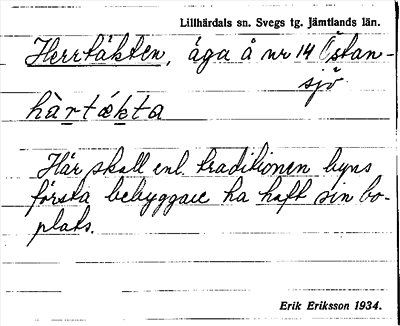 Lillhärdals sn. Svegs tg. Jämtlands län.
Herrtäkten, äga å nr 14 Östan-
sjö
hàr̲tæk̲ta
Här skall enl. traditionen byns
första bebyggare ha haft sin bo-
plats.
Erik Eriksson 1934.